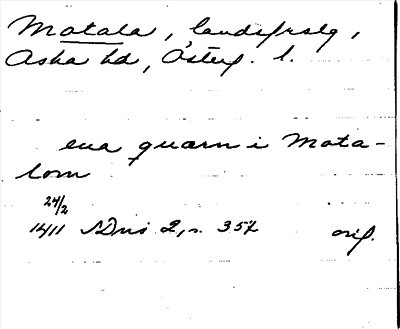 Motala, landsfrslg,
Aska hd, Österg. l.
ena quærn i Mota-
lom
24/2
1411 SDns 2, s. 357 orig.